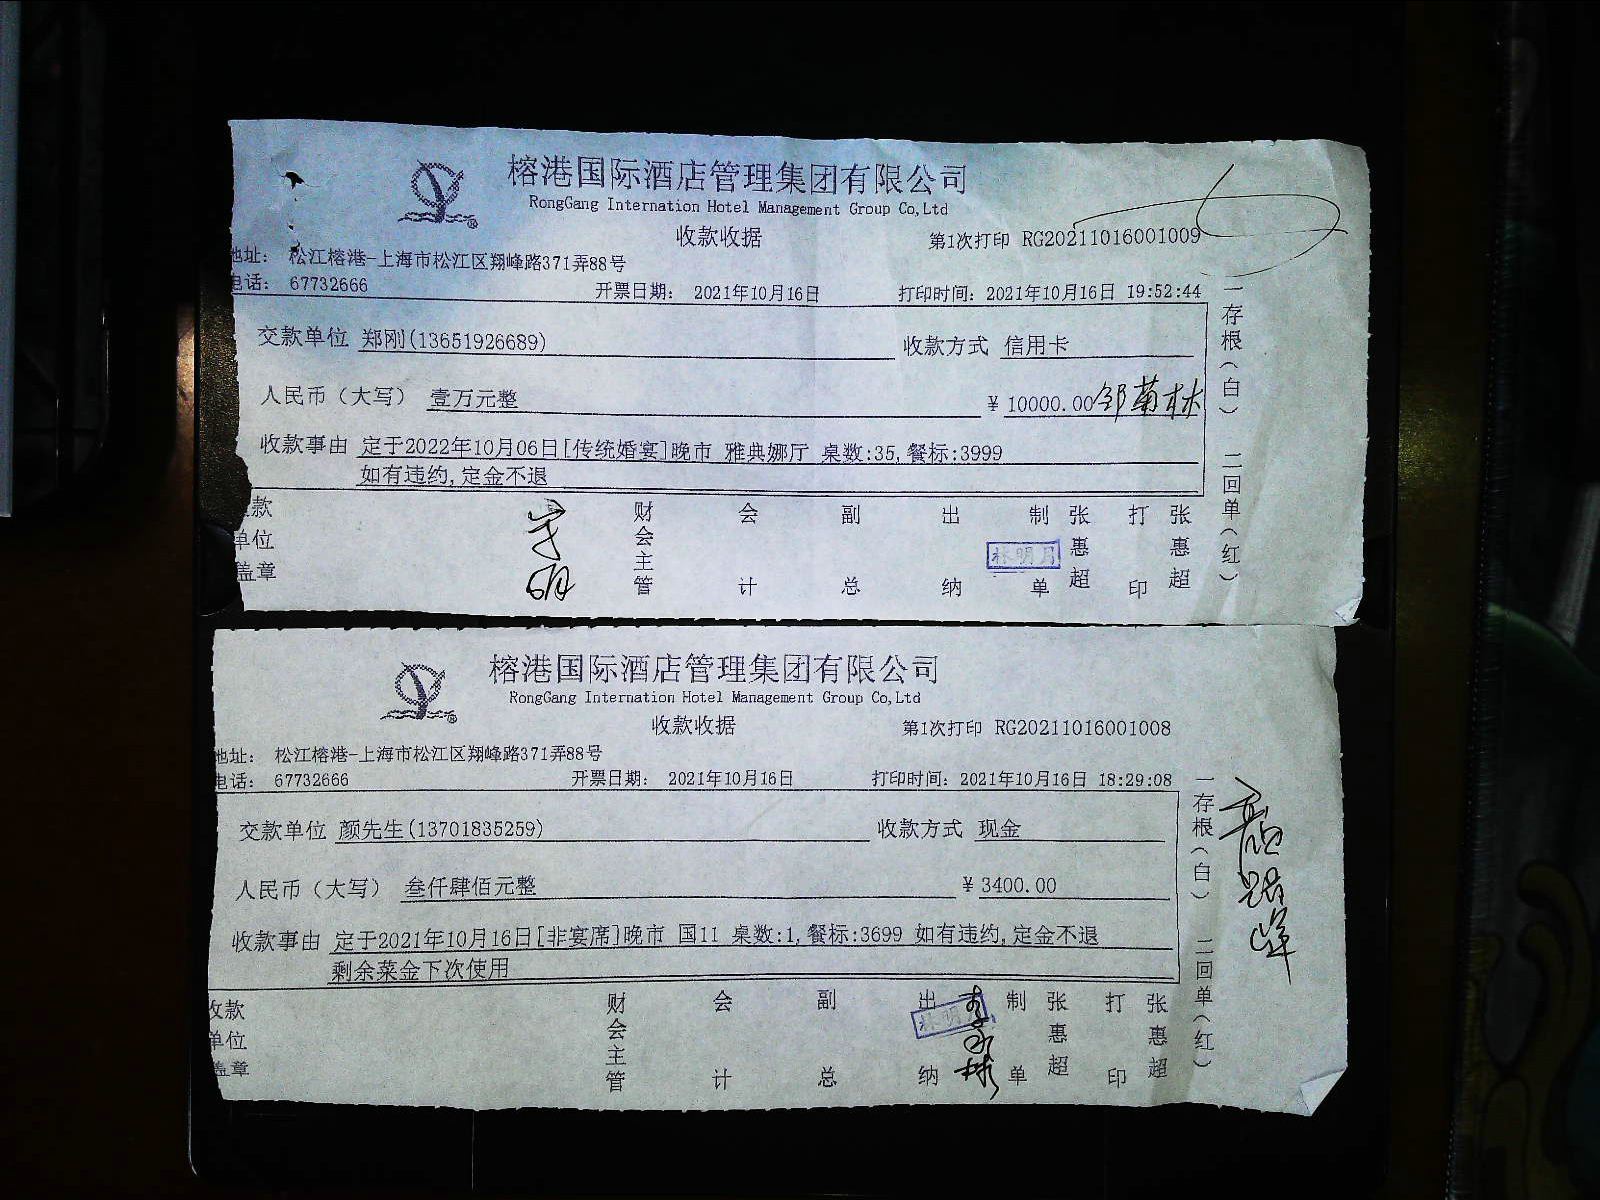 榕港国际酒店管理集团有限公司
RongGang Internation Hotel Management Group Co,Ltd
收款收据 第1次打印 RG20211016001009
地址： 松江榕港-上海市松江区翔峰路371弄88号
电话： 67732666 开票日期： 2021年10月16日 打印时间：2021年10月16日 19:52:44
交款单位 郑刚(13651926689) 收款方式 信用卡
人民币（大写） 壹万元整 ¥ 10000.00 邹菊林
收款事由 定于2022年10月06日[传统婚宴]晚市 雅典娜厅 桌数:35,餐标:3999
如有违约,定金不退
收款单位盖章 财会主管 会计 副总 出纳 林明月 制单 张惠超 打印 张惠超
一存根（白） 二回单（红）
榕港国际酒店管理集团有限公司
RongGang Internation Hotel Management Group Co,Ltd
收款收据 第1次打印 RG20211016001008
地址： 松江榕港-上海市松江区翔峰路371弄88号
电话： 67732666 开票日期： 2021年10月16日 打印时间：2021年10月16日 18:29:08
交款单位 颜先生(13701835259) 收款方式 现金
人民币（大写） 叁仟肆佰元整 ¥ 3400.00
收款事由 定于2021年10月16日[非宴席]晚市 国11 桌数:1,餐标:3699 如有违约,定金不退
剩余菜金下次使用
收款单位盖章 财会主管 会计 副总 出纳 林明月 制单 张惠超 打印 张惠超
一存根（白） 二回单（红）